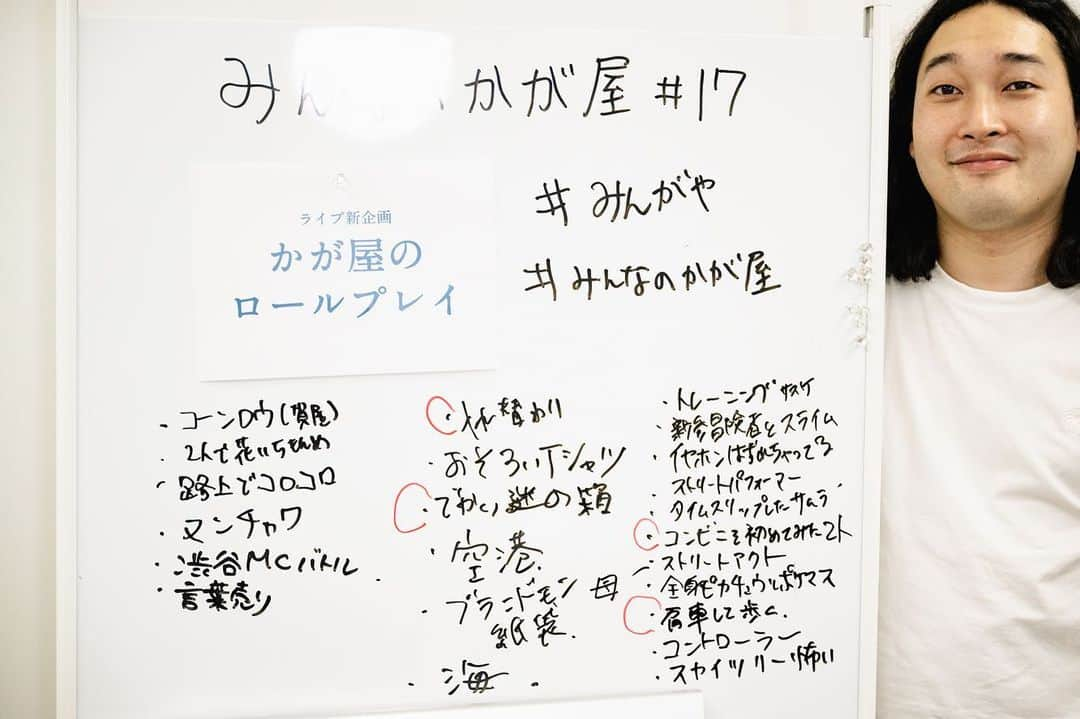 みんなのかが屋 #17
ライブ新企画
かが屋の
ロールプレイ
#みんがや
#みんなのかが屋
・コーンロウ(賀屋)
・2人で花いちもんめ
・路上でコロコロ
・ヌンチャク
・渋谷MCバトル
・言葉売り
・入れ替わり
・おそろいTシャツ
・でかい謎の箱
・空港
・ブランドモン 母
紙袋
・海
・トレーニングサスケ
・新参冒険者とスライム
・イヤホンはずめちゃってる
・ストリートパフォーマー
・タイムスリップしたサムライ
・コンビニを初めてみた2人
・ストリートアクト
・全身ピカチュウとポケマス
・肩車して歩く
・コントローラー
・スカイツリー怖い